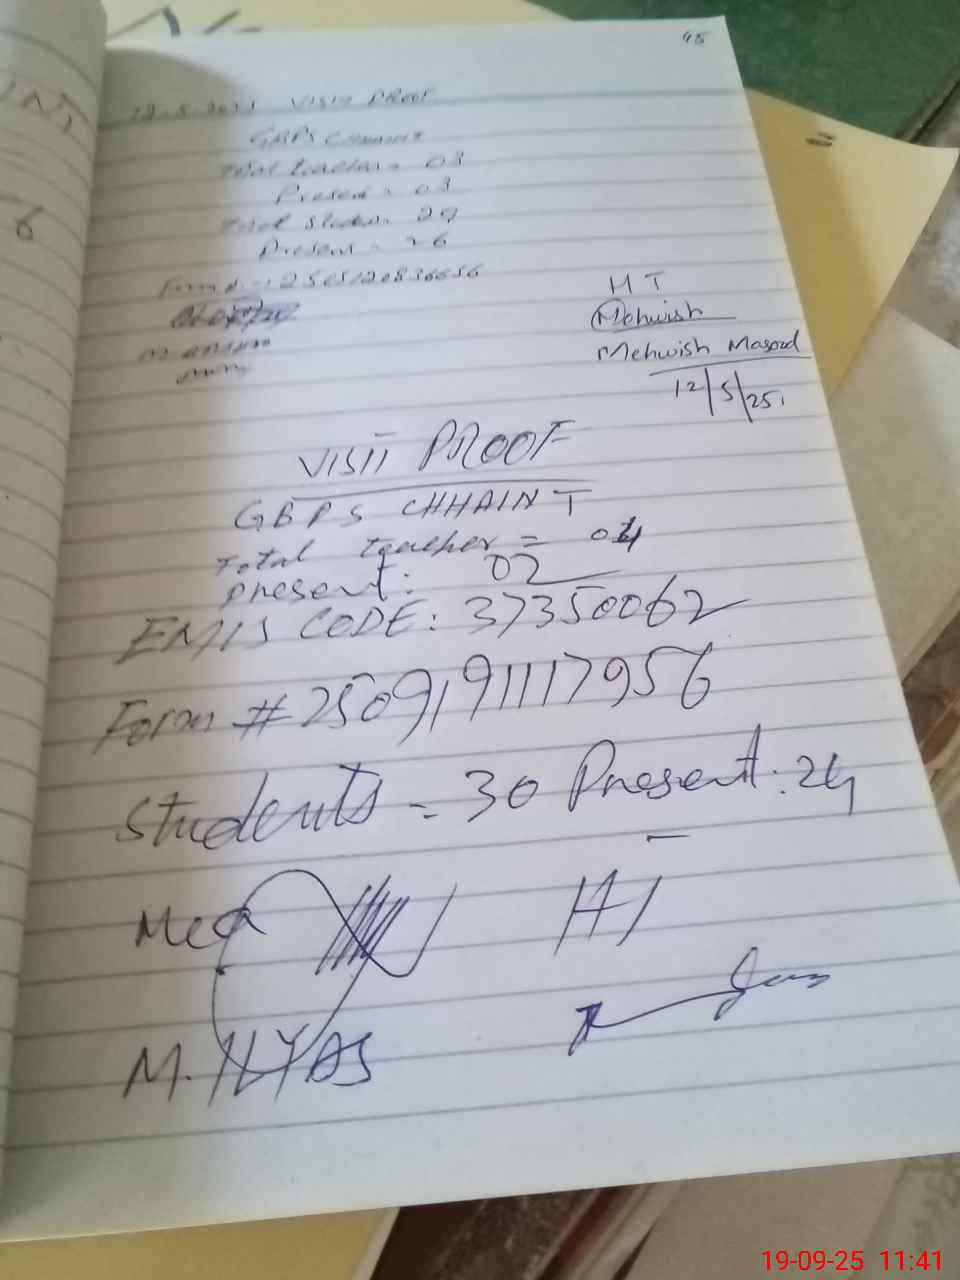 45
VISIT PROOF
GBPS CHHAINT
Total teacher = 03
Present = 03
Total Student = 29
Present = 26
HT
Mehwish
Mehwish Masood
12/5/25
VISIT PROOF
GBPS CHHAINT
Total teacher = 04
present: 02
EMIS CODE: 37350062
Form # 2509191117956
Students = 30 Present: 24
MEA
HT
M. ILYAS
19-09-25 11:41